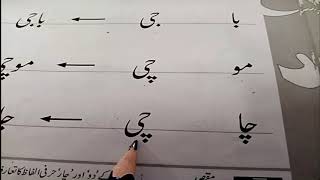 با جی ← باجی
مو چی ← موچی
چا چی ← چا
کے دو اور چار حرفی الفاظ کا تعارف